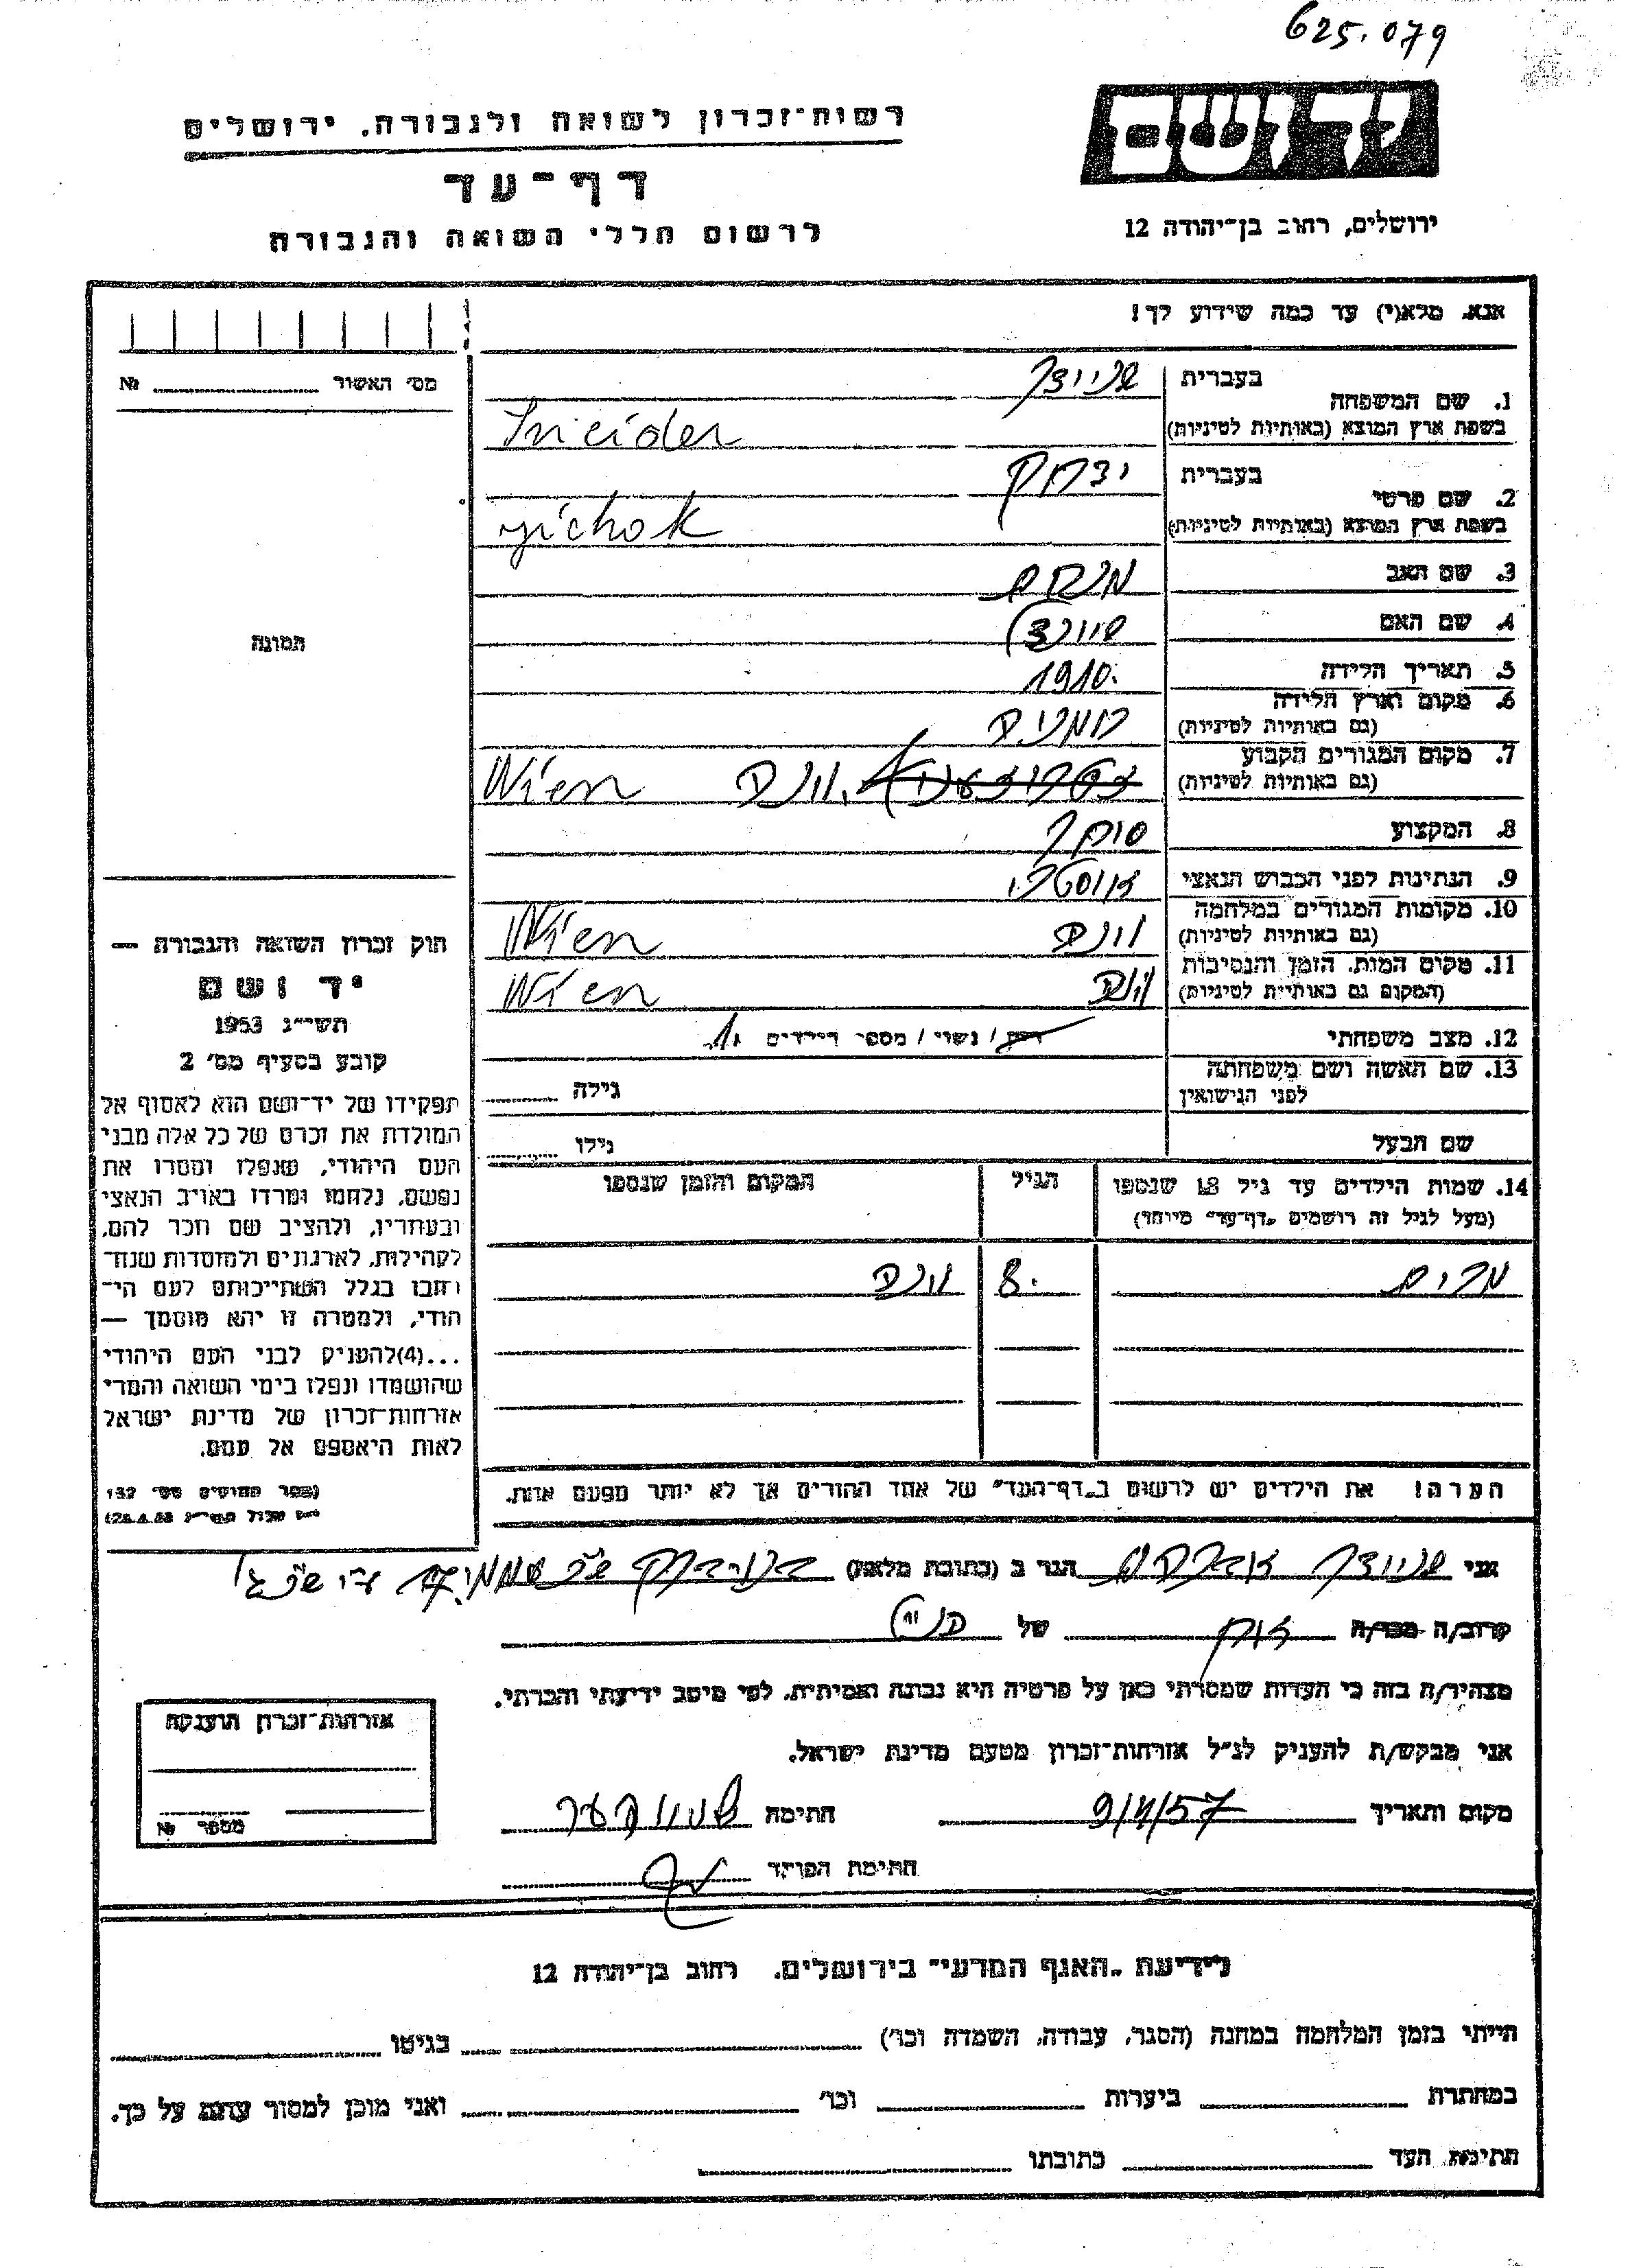 625.079
יד ושם
רשות־זכרון לשואה ולגבורה, ירושלים
דף־עד
לרשום חללי השואה והגבורה
ירושלים, רחוב בן־יהודה 12
אנא, מלא(י) עד כמה שידוע לך!
מס׳ האשור № 
1. שם המשפחה
בעברית שניידר
בשפת ארץ המוצא (באותיות לטיניות) Sneider
2. שם פרטי
בעברית יצחק
בשפת ארץ המוצא (באותיות לטיניות) yichok
3. שם האב מנחם
4. שם האם
5. תאריך הלידה 1910.
6. מקום וארץ הלידה
(גם באותיות לטיניות) רומניה
7. מקום המגורים הקבוע
(גם באותיות לטיניות) וינה Wien
8. המקצוע סוחר
9. הנתינות לפני הכבוש הנאצי אוסטרי
10. מקומות המגורים במלחמה
(גם באותיות לטיניות) וינה Wien
11. מקום המות, הזמן והנסיבות
(המקום גם באותיות לטיניות) וינה Wien
12. מצב משפחתי רוק / נשוי / מספר הילדים 1.
13. שם האשה ושם משפחתה
לפני הנישואין גילה
שם הבעל גילו
14. שמות הילדים עד גיל 18 שנספו הגיל המקום והזמן שנספו
(מעל לגיל זה רושמים „דף־עד״ מיוחד)
מרים 8. וינה
הערה! את הילדים יש לרשום ב„דף־העד״ של אחד ההורים אך לא יותר מפעם אחת.
תמונה
חוק זכרון השואה והגבורה —
יד ושם
תשי״ג 1953
קובע בסעיף מס׳ 2
תפקידו של יד־ושם הוא לאסוף אל
המולדת את זכרם של כל אלה מבני
העם היהודי, שנפלו ומסרו את
נפשם, נלחמו ומרדו באויב הנאצי
ובעוזריו, ולהציב שם וזכר להם,
לקהילות, לארגונים ולמוסדות שנח־
רבו בגלל השתייכותם לעם הי־
הודי, ולמטרה זו יהא מוסמך —
...(4)להעניק לבני העם היהודי
שהושמדו ונפלו בימי השואה והמרי
אזרחות־זכרון של מדינת ישראל
לאות היאספם אל עמם.
(ספר החוקים מס׳ 132
אני שניידר אברהם הגר ב (כתובת מלאה)
קרוב/ה מכר/ה של
מצהיר/ה בזה כי העדות שמסרתי כאן על פרטיה היא נכונה ואמיתית, לפי מיטב ידיעתי והכרתי.
אני מבקש/ת להעניק לנ״ל אזרחות־זכרון מטעם מדינת ישראל.
מקום ותאריך 9/4/57 חתימה
חתימת הפוקד
אזרחות־זכרון הוענקה
מספר №
לידיעת „האגף המדעי״ בירושלים, רחוב בן־יהודה 12
הייתי בזמן המלחמה במחנה (הסגר, עבודה, השמדה וכו׳) בגיטו
במחתרת ביערות וכו׳ ואני מוכן למסור עדות על כך.
חתימת העד כתובתו